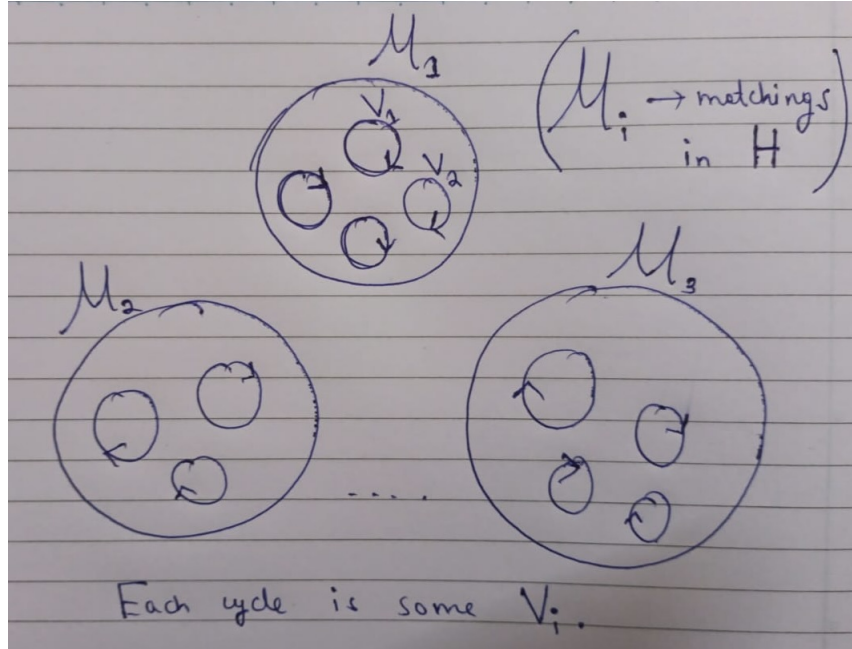 M₁
(Mᵢ → matchings
in H)
V₁
V₂
M₂
M₃
....
Each cycle is some Vᵢ.